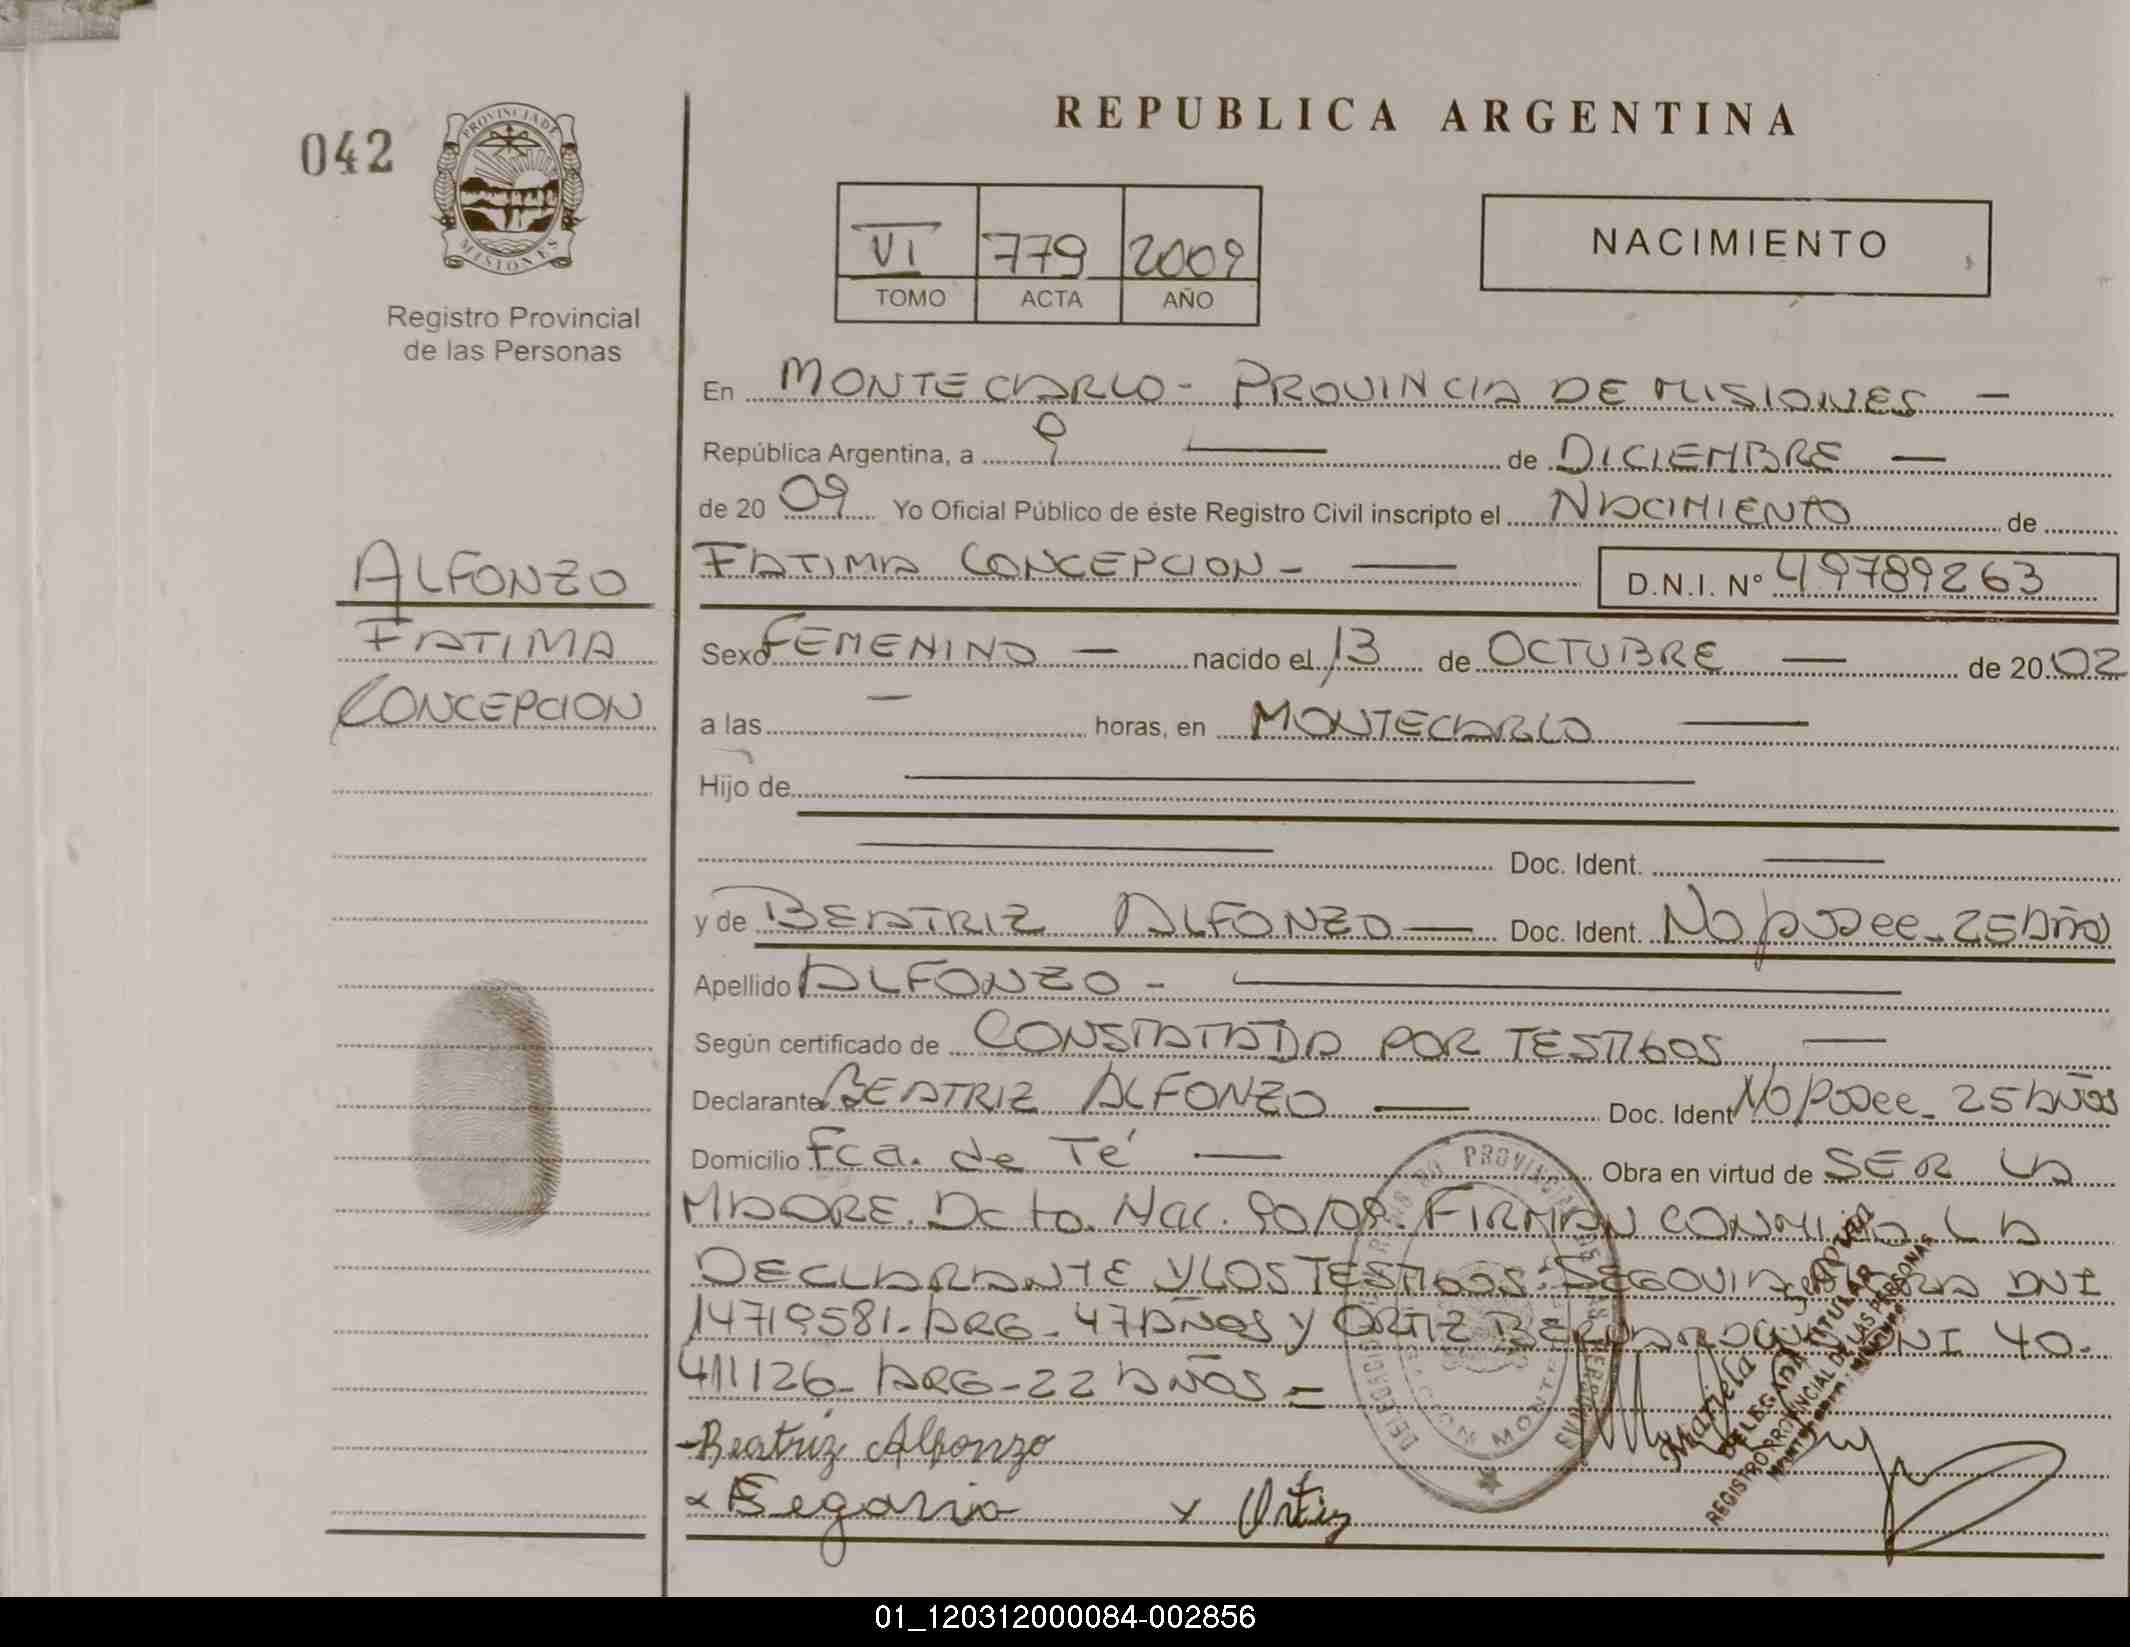 REPUBLICA ARGENTINA
042
PROVINCIA DE
MISIONES
Registro Provincial
de las Personas
VI 779 2009
TOMO ACTA AÑO
NACIMIENTO
En MONTECARLO - PROVINCIA DE MISIONES —
República Argentina, a 9 — de DICIEMBRE —
de 20 09 Yo Oficial Público de éste Registro Civil inscripto el NACIMIENTO de
FATIMA CONCEPCION - — D.N.I. Nº 49789263
ALFONZO
FATIMA
CONCEPCION
Sexo FEMENINO — nacido el 13 de OCTUBRE — de 20 02
a las — horas, en MONTECARLO —
Hijo de —
— Doc. Ident. —
y de BEATRIZ ALFONZO — Doc. Ident. No posee - 25 Años
Apellido ALFONZO - —
Según certificado de CONSTATADA POR TESTIGOS —
Declarante BEATRIZ ALFONZO — Doc. Ident No posee - 25 AÑOS
Domicilio Fca. de Té — Obra en virtud de SER LA
MADRE. Dcto. Nac. 90/09. FIRMAN CONMIGO LA
DECLARANTE Y LOS TESTIGOS: SEGOVIA DNI
14719581 - ARG - 47 AÑOS Y ORTIZ DNI 40.
411126 - ARG - 22 AÑOS =
- Beatriz Alfonzo
x Segovia x Ortiz
Mariela
DELEGADA TITULAR
REGISTRO PROVINCIAL DE LAS PERSONAS
01_120312000084-002856